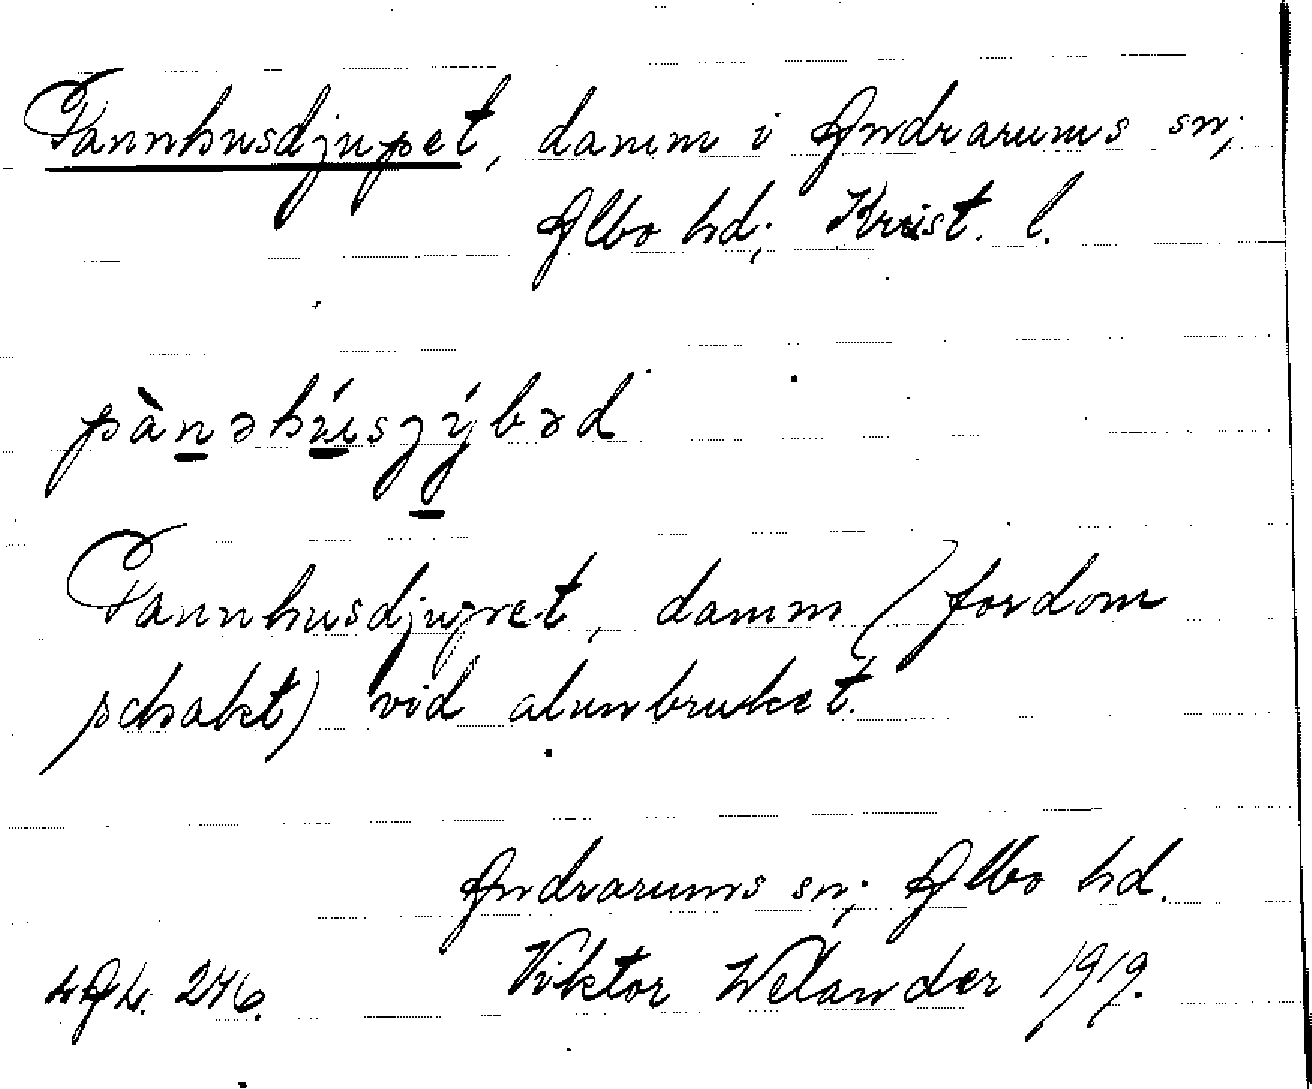 Pannhusdjupet, damm i Andrarums sn;
Albo hd; Krist. l.
pànəhúsȷýbəd
Pannhusdjupet, damm (fordom
schakt) vid alunbruket.
Andrarums sn; Albo hd.
Viktor Welander 1919.
246.